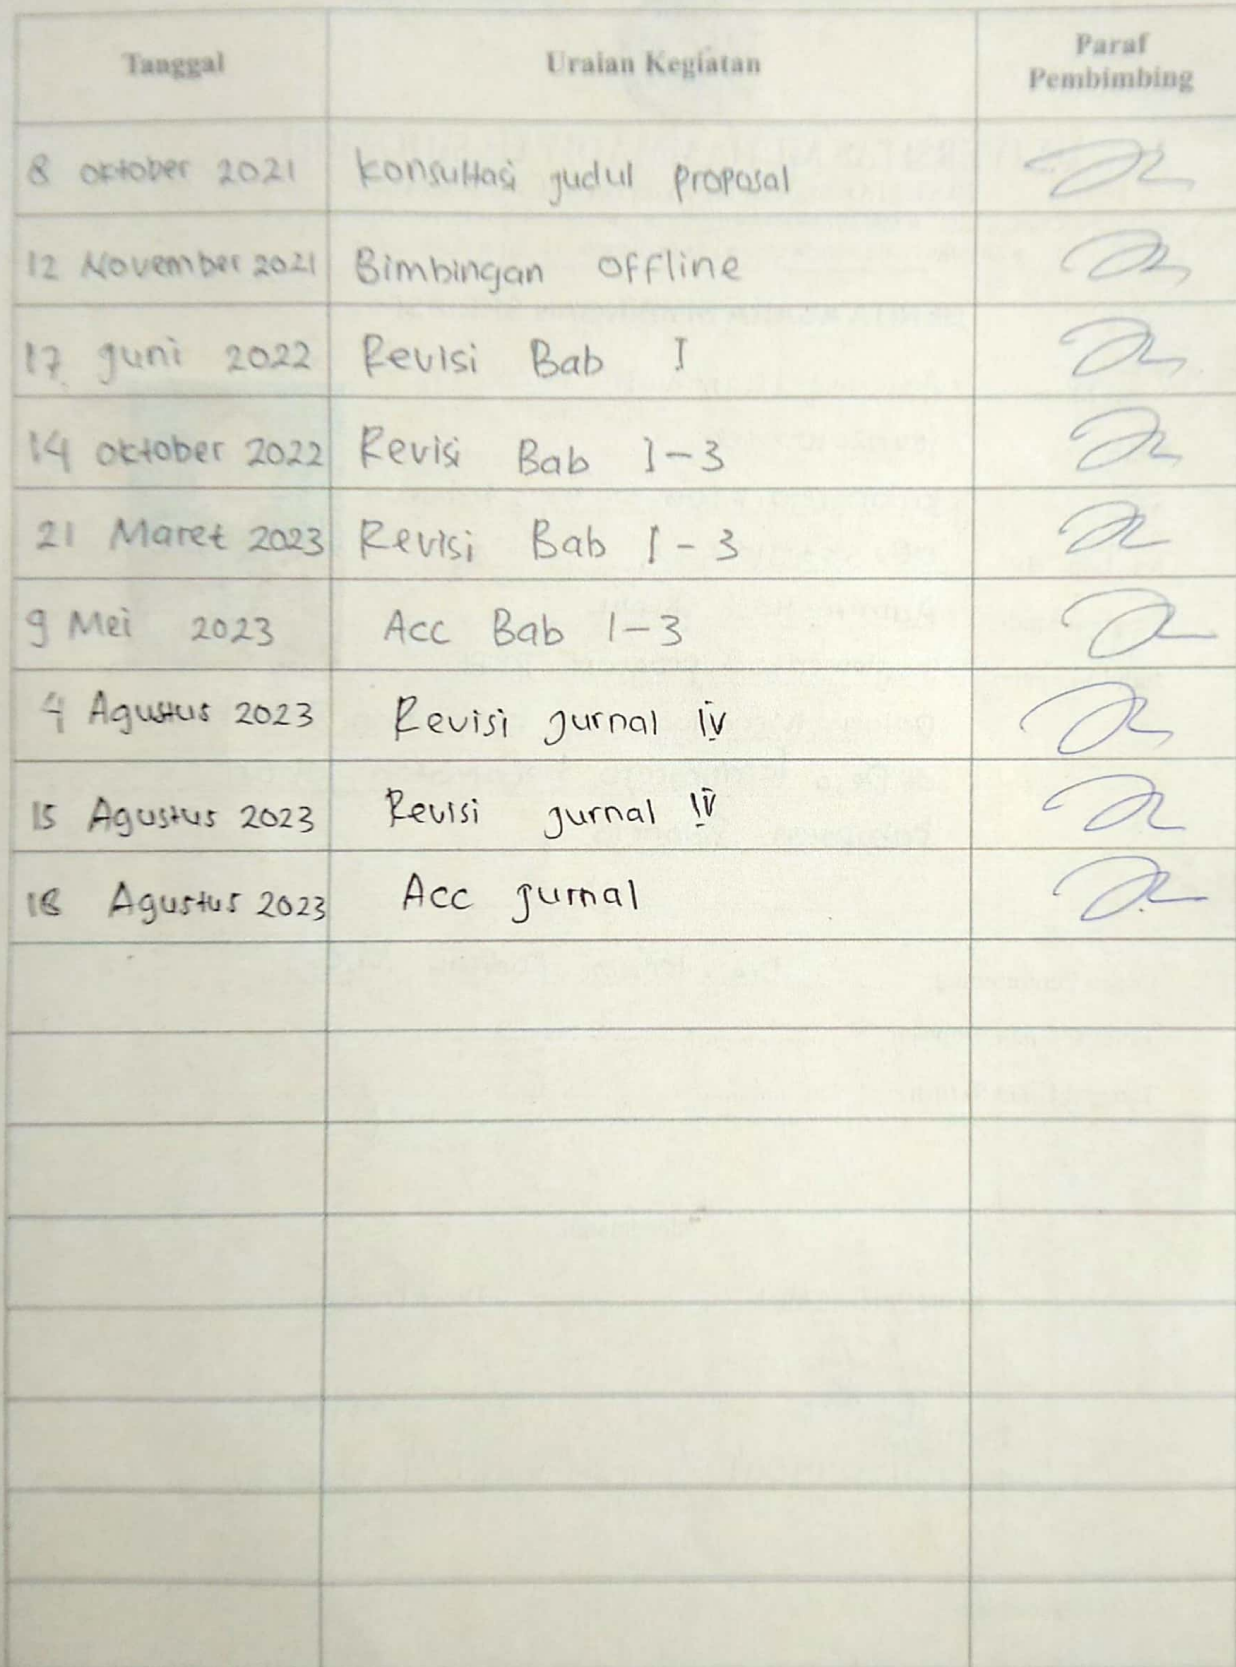 Tanggal Uraian Kegiatan Paraf
Pembimbing
8 oktober 2021 konsultasi judul proposal
12 November 2021 Bimbingan offline
17 juni 2022 Revisi Bab I
14 oktober 2022 Revisi Bab 1-3
21 Maret 2023 Revisi Bab 1-3
9 Mei 2023 Acc Bab 1-3
4 Agustus 2023 Revisi jurnal IV
15 Agustus 2023 Revisi jurnal IV
18 Agustus 2023 Acc jurnal